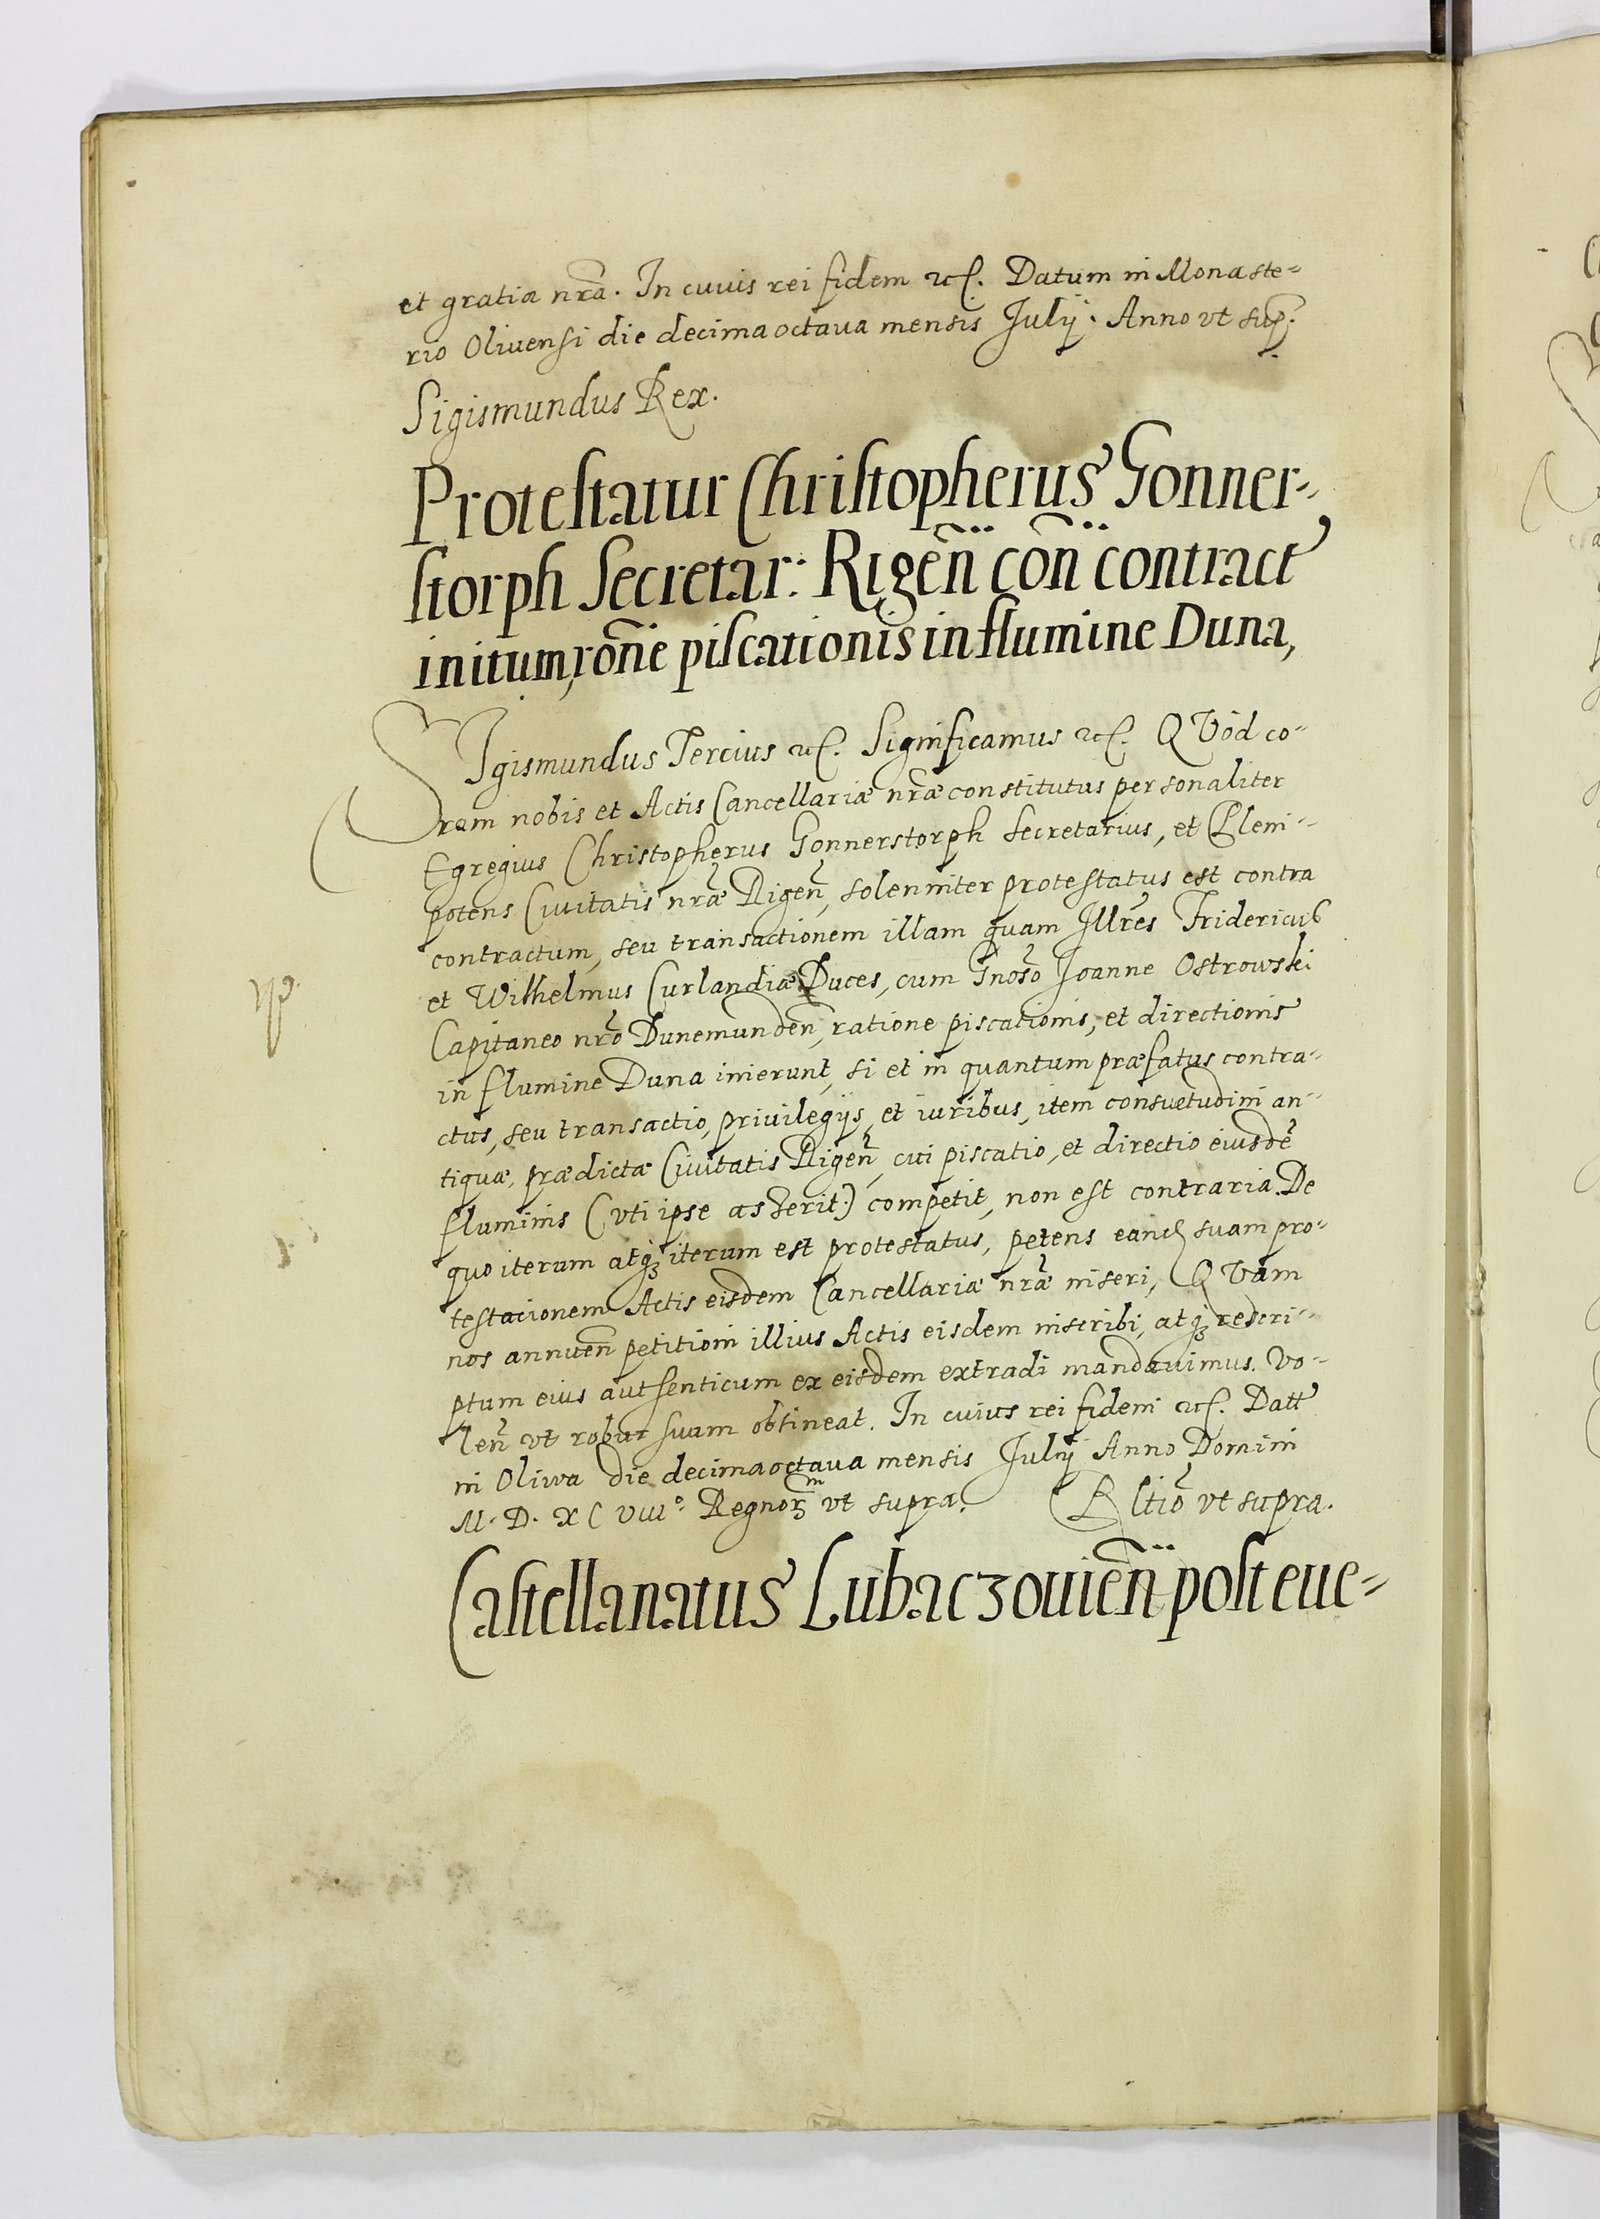 et gratia nrã. In cuuis rei fidem etc. Datum in Monaste-
rio Oliuensi die decima octaua mensis Julij. Anno vt sup.
Sigismundus Rex.
Protestatur Christopherus Gonner-
storph Secretar: Rigeñ coñ contract
initum, roñe piscationis in flumine Duna,
SIgismundus Tercius etc. Significamus etc. QVod co-
ram nobis et Actis Cancellariæ nræ constitutus personaliter
Egregius Christopherus Gonnerstorph Secretarius, et Pleni-
potens Ciuitatis nræ Rigeñ, solenniter protestatus est contra
contractum, seu transactionem illam quam Illres Fridericus
et Wilhelmus Curlandiæ Duces, cum Gnoso Joanne Ostrowski
Capitaneo nro Dunemundeñ, ratione piscationis, et directionis
in flumine Duna inierunt, si et in quantum præfatus contra-
ctus, seu transactio, priuilegijs, et iuribus, item consuetudini an-
tiquæ, prædictæ Ciuitatis Rigeñ, cui piscatio, et directio eiusdē
fluminis (vti ipse asserit) competit, non est contraria. De
quo iterum atqȝ iterum est protestatus, petens eand suam pro-
testacionem Actis eisdem Cancellariæ nræ inseri, QVam
nos annueñ petitioni illius Actis eisdem inscribi, atqȝ rescri-
ptum eius authenticum ex eisdem extradi mandauimus. Vo-
leñ vt robur suum obtineat. In cuius rei fidem etc. Datt
in Oliwa die decima octaua mensis Julij Anno Domini
M. D. XC VIII.° Regnorȝ m vt supra. Rltio vt supra.
Castellanatus Lubaczouieñ post eue-